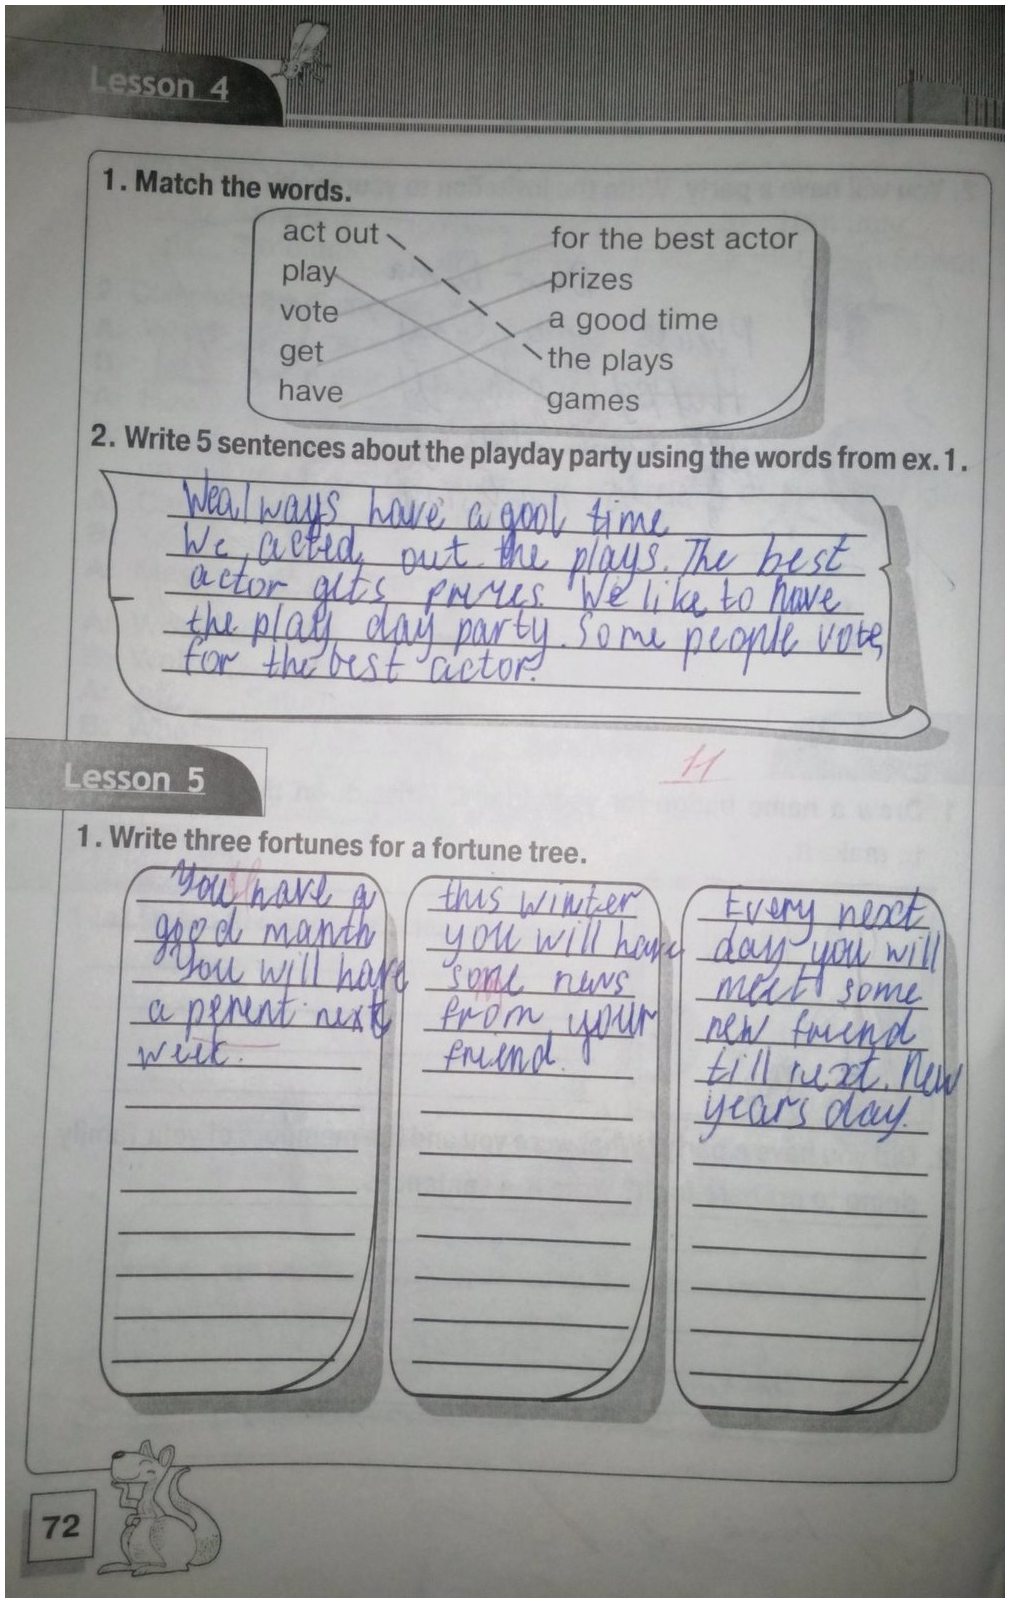 Lesson 4
1. Match the words.
act out
play
vote
get
have
for the best actor
prizes
a good time
the plays
games
2. Write 5 sentences about the playday party using the words from ex. 1.
We always have a good time
We acted out the plays. The best
actor gets prizes. We like to have
the play day party. Some people vote
for the best actor.
Lesson 5
1. Write three fortunes for a fortune tree.
You have a
good manth
You will have
a perent next
week.
this winter
you will have
some news
from your
friend.
Every next
day you will
meet some
new friend
till next New
years day.
72